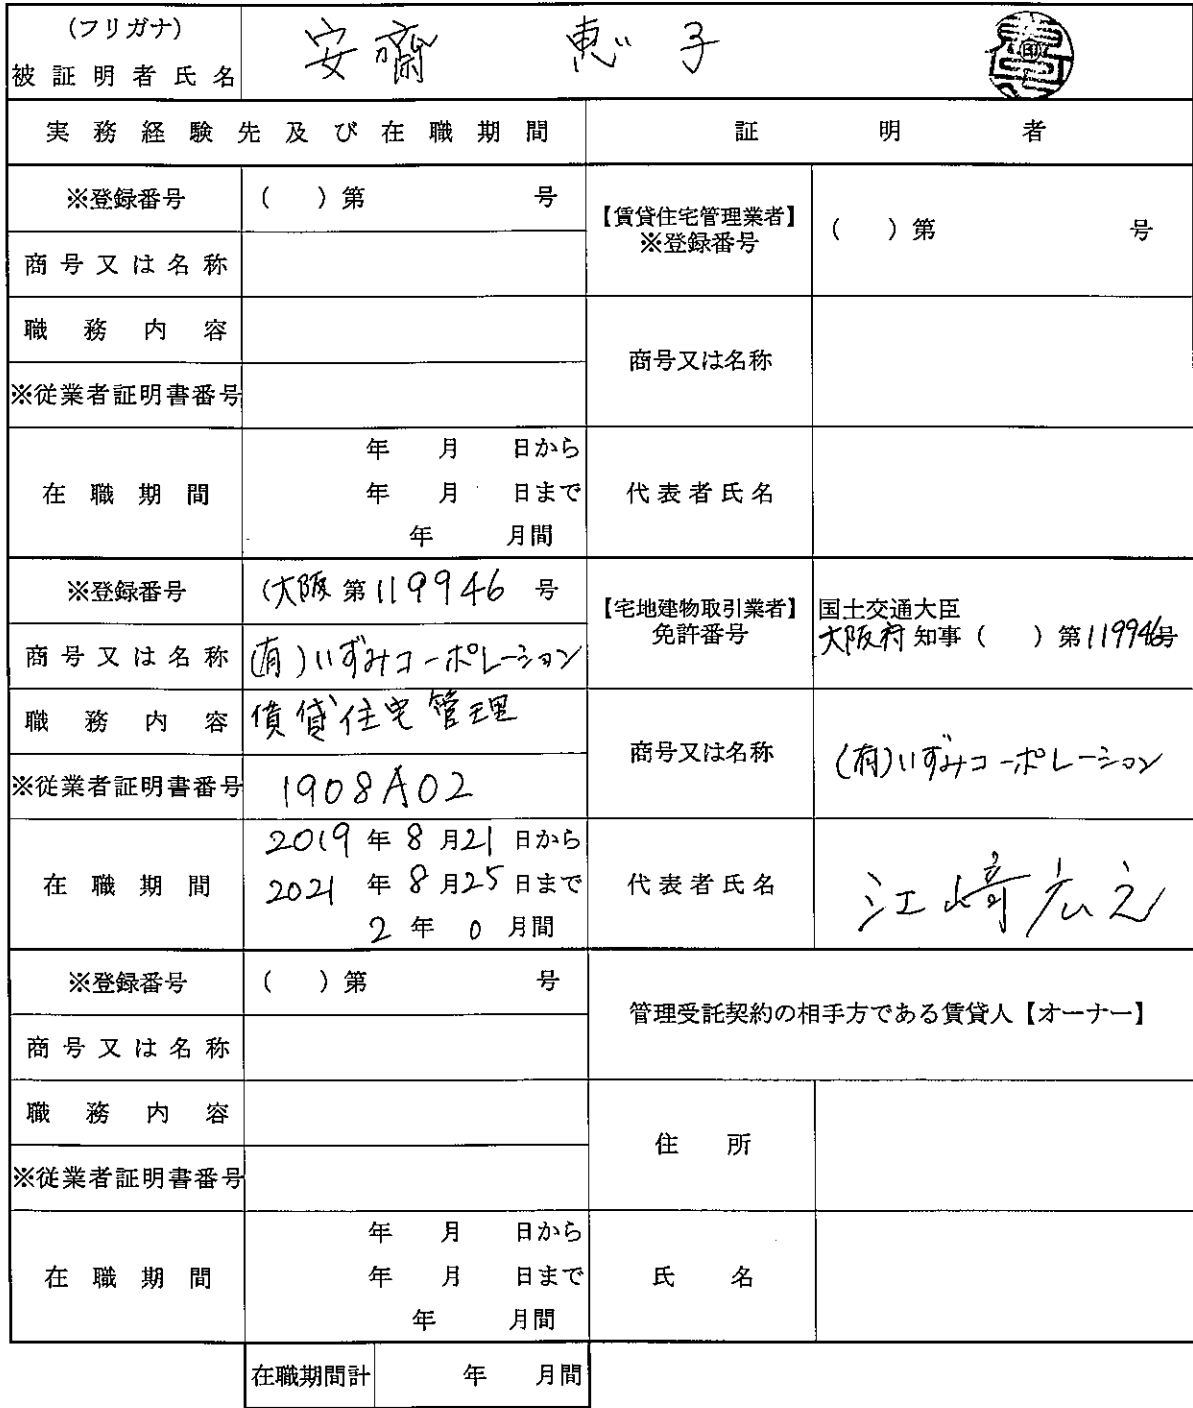 (フリガナ)
被証明者氏名
安齋 恵子
実務経験先及び在職期間
証明者
※登録番号
( )第 号
【賃貸住宅管理業者】
※登録番号
( )第 号
商号又は名称
職務内容
商号又は名称
※従業者証明書番号
在職期間
年 月 日から
年 月 日まで
年 月間
代表者氏名
※登録番号
(大阪 第119946 号
【宅地建物取引業者】
免許番号
国土交通大臣
大阪府知事( )第119946号
商号又は名称
(有)いずみコーポレーション
職務内容
債貸住宅管理
商号又は名称
(有)いずみコーポレーション
※従業者証明書番号
1908A02
在職期間
2019年8月21日から
2021年8月25日まで
2年0月間
代表者氏名
江﨑広之
※登録番号
( )第 号
管理受託契約の相手方である賃貸人【オーナー】
商号又は名称
職務内容
住所
※従業者証明書番号
在職期間
年 月 日から
年 月 日まで
年 月間
氏名
在職期間計
年 月間